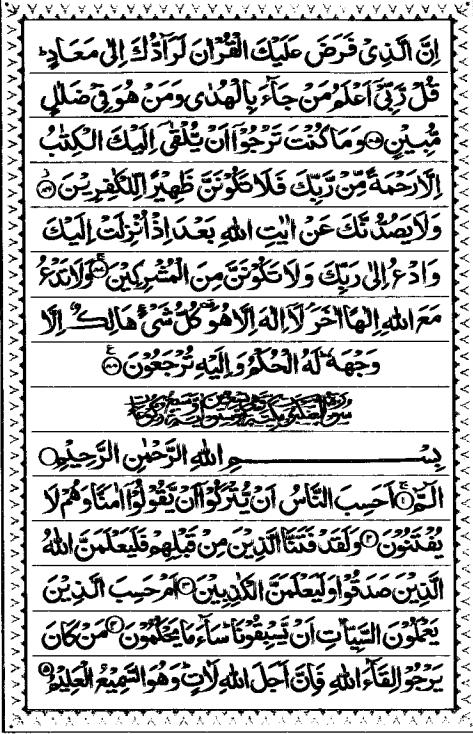 اِنَّ الَّذِىْ فَرَضَ عَلَيْكَ الْقُرْاٰنَ لَرَآدُّكَ اِلٰى مَعَادٍ ؕ
قُلْ رَّبِّىْۤ اَعْلَمُ مَنْ جَآءَ بِالْهُدٰى وَمَنْ هُوَ فِىْ ضَلٰلٍ
مُّبِيْنٍ ۝۸۵ وَمَا كُنْتَ تَرْجُوْۤا اَنْ يُّلْقٰٓى اِلَيْكَ الْكِتٰبُ
اِلَّا رَحْمَةً مِّنْ رَّبِّكَ فَلَا تَكُوْنَنَّ ظَهِيْرًا لِّلْكٰفِرِيْنَ ۝۸۶
وَلَا يَصُدُّنَّكَ عَنْ اٰيٰتِ اللّٰهِ بَعْدَ اِذْ اُنْزِلَتْ اِلَيْكَ
وَادْعُ اِلٰى رَبِّكَ وَلَا تَكُوْنَنَّ مِنَ الْمُشْرِكِيْنَ ۝۸۷ وَلَا تَدْعُ
مَعَ اللّٰهِ اِلٰهًا اٰخَرَ ۘ لَاۤ اِلٰهَ اِلَّا هُوَ ۟ كُلُّ شَىْءٍ هَالِكٌ اِلَّا
وَجْهَهٗ ؕ لَهُ الْحُكْمُ وَاِلَيْهِ تُرْجَعُوْنَ ۝۸۸
بِسْمِ اللّٰهِ الرَّحْمٰنِ الرَّحِيْمِ
الٓمّٓ ۝۱ اَحَسِبَ النَّاسُ اَنْ يُّتْرَكُوْۤا اَنْ يَّقُوْلُوْۤا اٰمَنَّا وَهُمْ لَا
يُفْتَنُوْنَ ۝۲ وَلَقَدْ فَتَنَّا الَّذِيْنَ مِنْ قَبْلِهِمْ فَلَيَعْلَمَنَّ اللّٰهُ
الَّذِيْنَ صَدَقُوْا وَلَيَعْلَمَنَّ الْكٰذِبِيْنَ ۝۳ اَمْ حَسِبَ الَّذِيْنَ
يَعْمَلُوْنَ السَّيِّاٰتِ اَنْ يَّسْبِقُوْنَا ؕ سَآءَ مَا يَحْكُمُوْنَ ۝۴ مَنْ كَانَ
يَرْجُوْا لِقَآءَ اللّٰهِ فَاِنَّ اَجَلَ اللّٰهِ لَاٰتٍ ؕ وَهُوَ السَّمِيْعُ الْعَلِيْمُ ۝۵